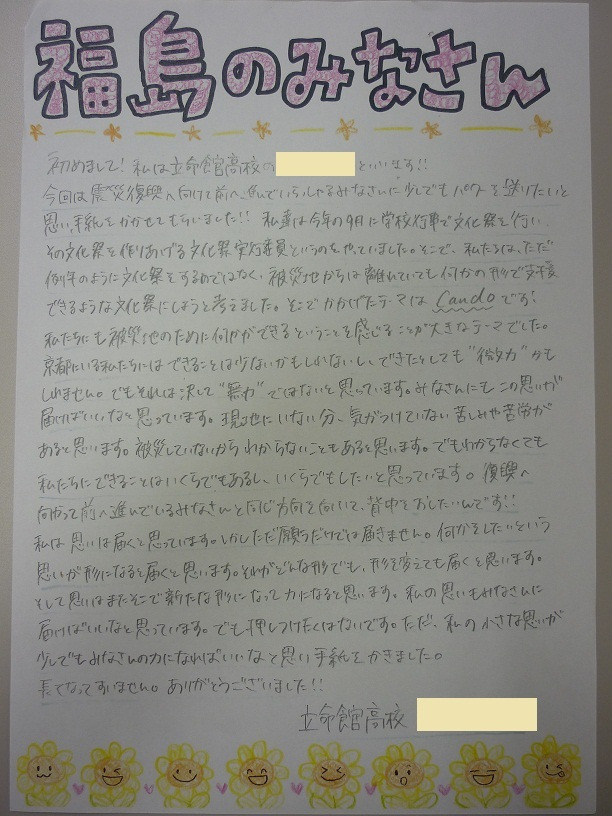 福島のみなさん
初めまして！私は立命館高校の といいます!!
今回は震災復興へ向けて前へ進んでいらっしゃるみなさんに少しでもパワーを送りたいと
思い、手紙をかかせてもらいました!! 私達は今年の9月に学校行事で文化祭を行い、
その文化祭を作りあげる文化祭実行委員というのをやっていました。そこで、私たちは、ただ
例年のように文化祭をするのではなく、被災地からは離れていても何かの形で支援
できるような文化祭にしようと考えました。そこでかかげたテーマは Cando です！
私たちにも被災地のために何かができるということを感じることが大きなテーマでした。
京都にいる私たちにはできることは少ないかもしれないし、できたとしても"微力"かも
しれません。でもそれは決して"無力"ではないと思っています。みなさんにもこの思いが
届けばいいなと思っています。現地にいない分、気がつけていない苦しみや苦労が
あると思います。被災していないからわからないこともあると思います。でもわからなくても
私たちにできることはいくらでもあるし、いくらでもしたいと思っています。復興へ
向かって前へ進んでいるみなさんと同じ方向を向いて、背中をおしたいんです!!
私は思いは届くと思っています。しかしただ願うだけでは届きません。何かをしたいという
思いが形になると届くと思います。それがどんな形でも、形を変えても届くと思います。
そして思いはまたそこで新たな形になって力になると思います。私の思いもみなさんに
届けばいいなと思っています。でも押しつけたくはないです。ただ、私の小さな思いが
少しでもみなさんの力になればいいなと思い手紙をかきました。
長くなってすいません。ありがとうございました!!
立命館高校